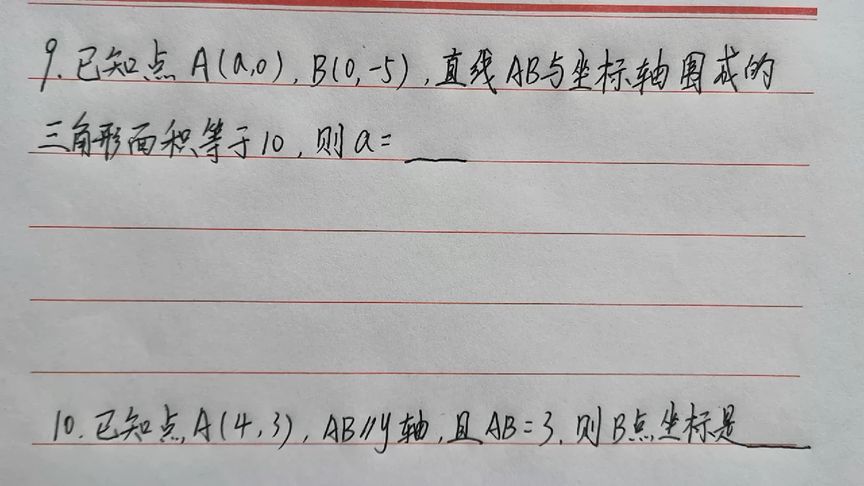 9.已知点A(a,0),B(0,-5),直线AB与坐标轴围成的
三角形面积等于10,则a=___
10.已知点A(4,3),AB//y轴,且AB=3.则B点坐标是____